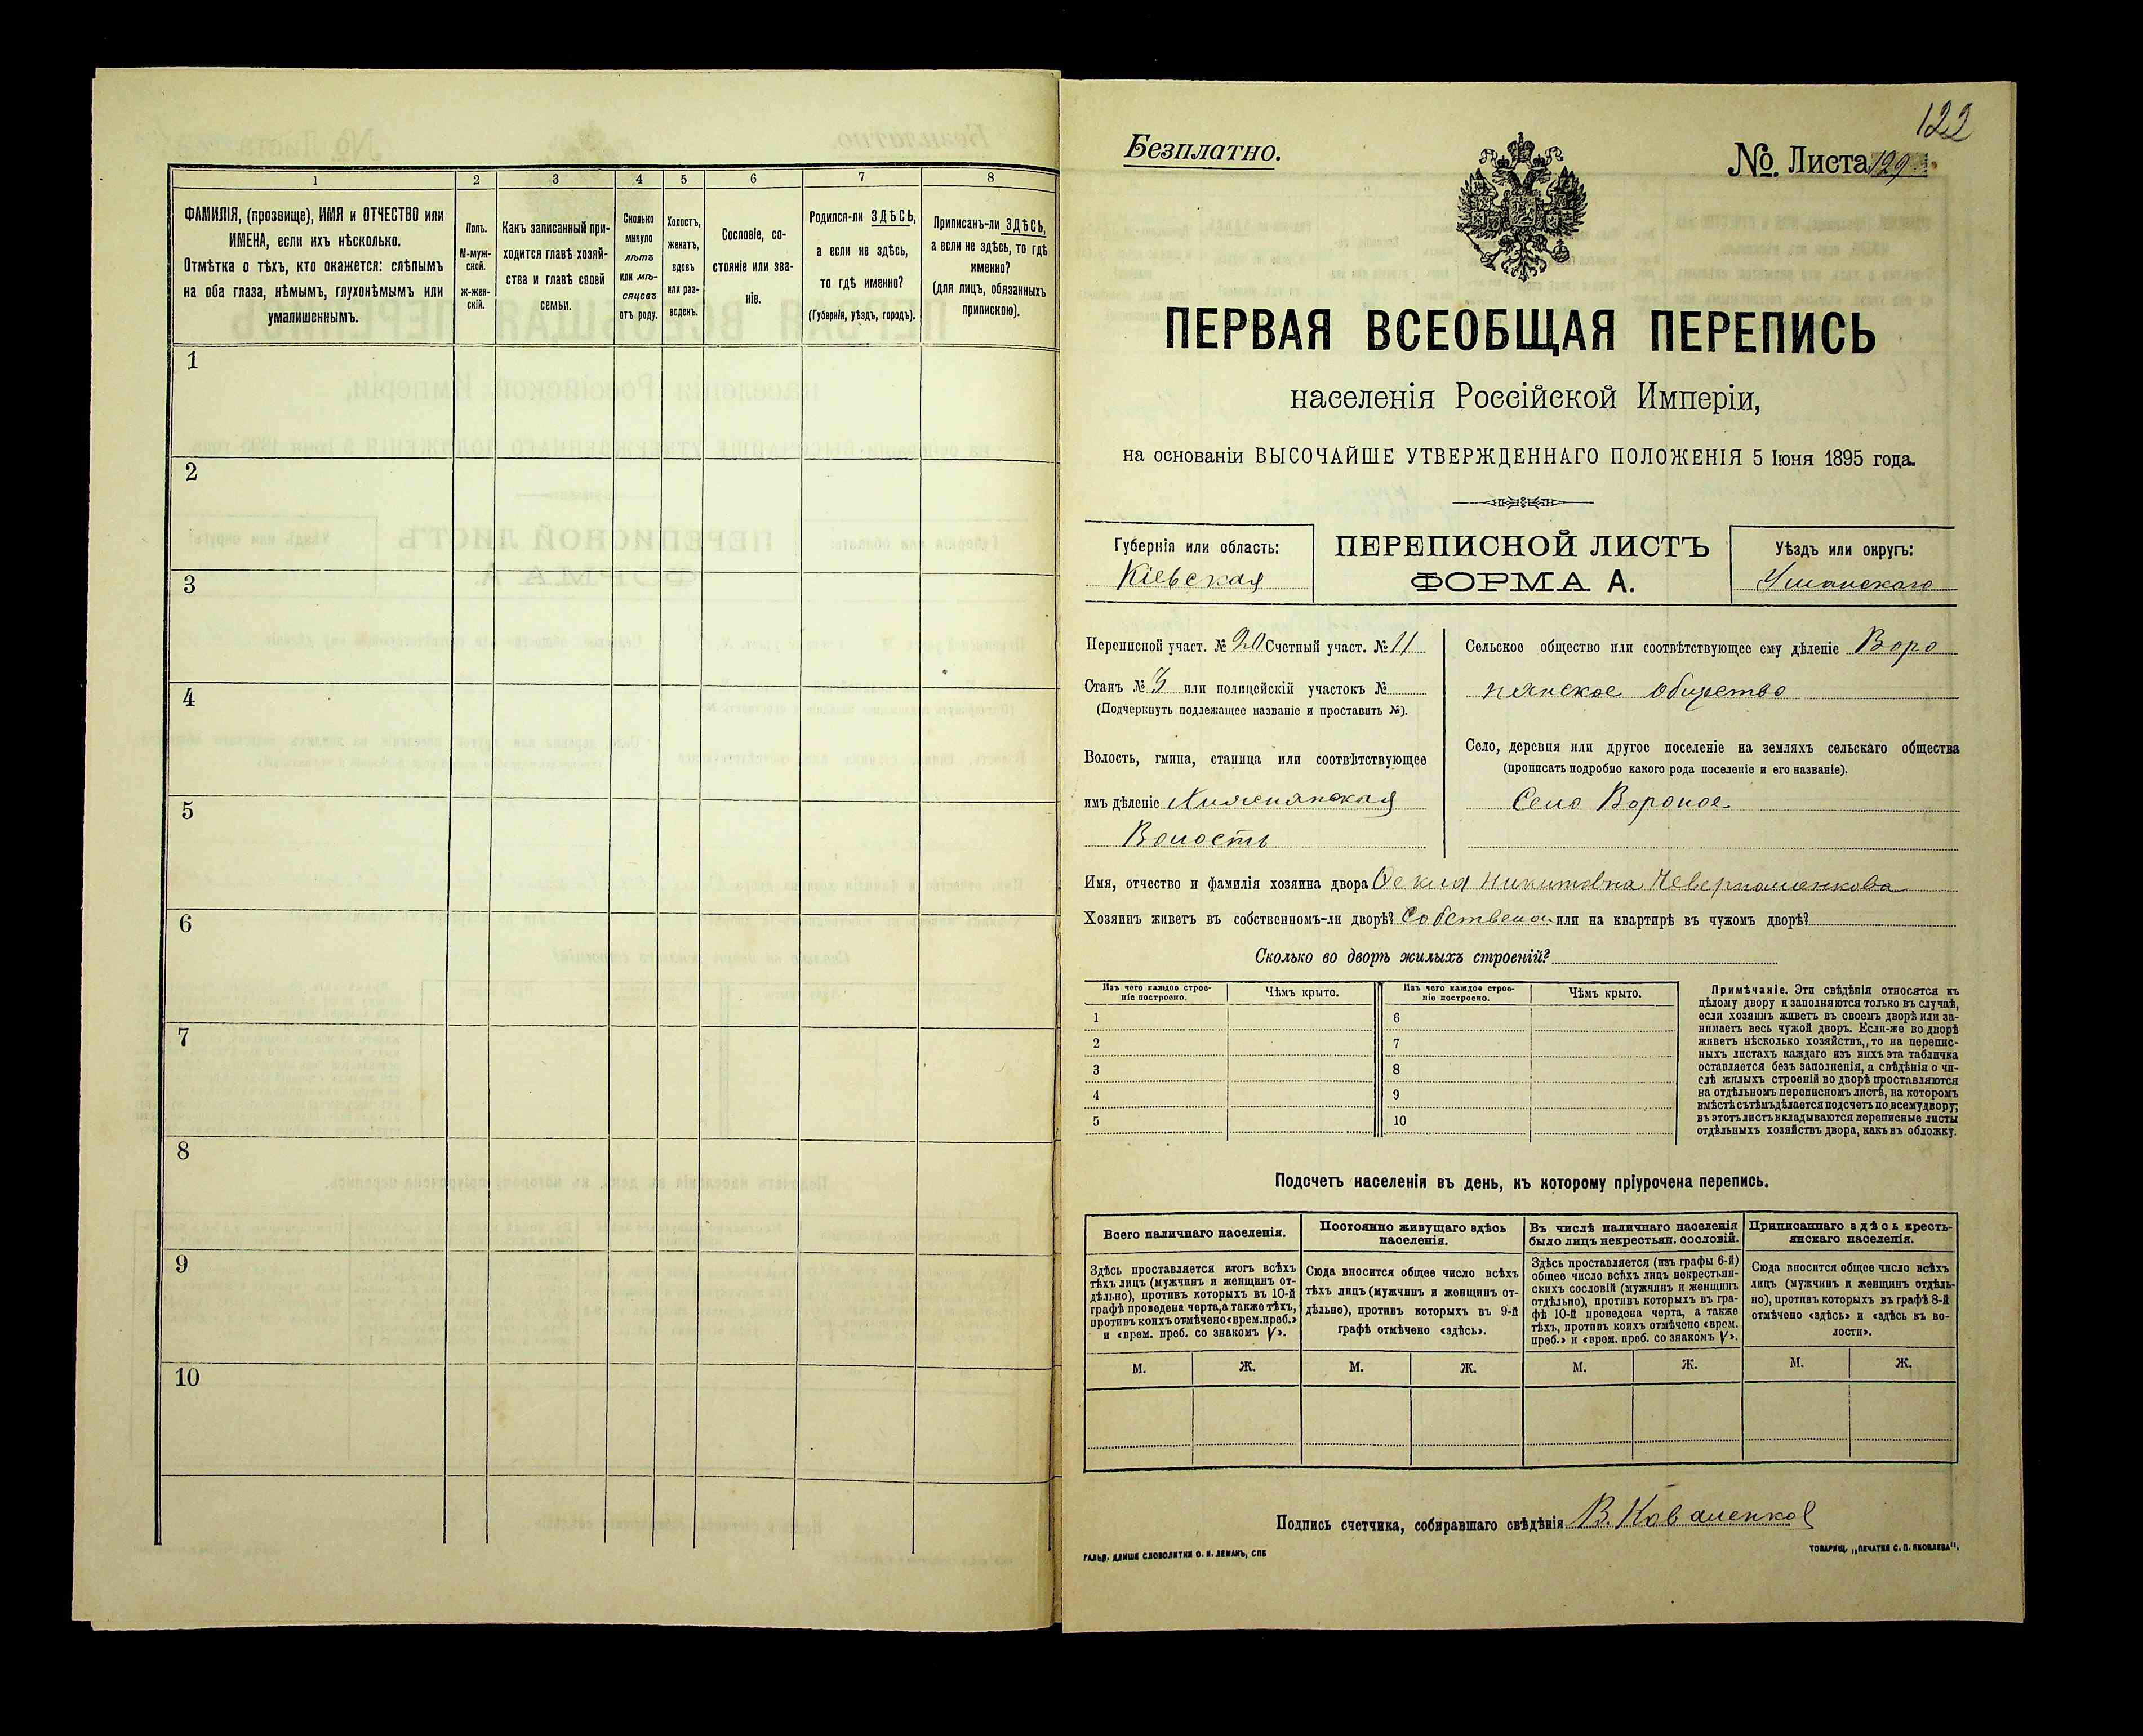 1 2 3 4 5 6 7 8
ФАМИЛІЯ, (прозвище), ИМЯ и ОТЧЕСТВО или
ИМЕНА, если ихъ нѣсколько.
Отмѣтка о тѣхъ, кто окажется: слѣпымъ
на оба глаза, нѣмымъ, глухонѣмымъ или
умалишеннымъ.
Полъ.
М-муж-
ской.
ж-жен-
скій.
Какъ записанный при-
ходится главѣ хозяй-
ства и главѣ своей
семьи.
Сколько
минуло
лѣтъ
или мѣ-
сяцевъ
отъ роду.
Холостъ,
женатъ,
вдовъ
или раз-
веденъ.
Сословіе, со-
стояніе или зва-
ніе.
Родился-ли ЗДѢСЬ,
а если не здѣсь,
то гдѣ именно?
(Губернія, уѣздъ, городъ).
Приписанъ-ли ЗДѢСЬ,
а если не здѣсь, то гдѣ
именно?
(для лицъ, обязанныхъ
припискою).
1
2
3
4
5
6
7
8
9
10
122
Безплатно.
№. Листа 129
ПЕРВАЯ ВСЕОБЩАЯ ПЕРЕПИСЬ
населенія Россійской Имперіи,
на основаніи ВЫСОЧАЙШЕ УТВЕРЖДЕННАГО ПОЛОЖЕНІЯ 5 Іюня 1895 года.
Губернія или область:
Кіевская
ПЕРЕПИСНОЙ ЛИСТЪ
ФОРМА А.
Уѣздъ или округъ:
Уманскаго
Переписной участ. № 20 Счетный участ. № 11
Станъ № 3 или полицейскій участокъ №
(Подчеркнуть подлежащее названіе и проставить №).
Волость, гмина, станица или соотвѣтствующее
имъ дѣленіе
Волость
Сельское общество или соотвѣтствующее ему дѣленіе Воро
нянское общество
Село, деревня или другое поселеніе на земляхъ сельскаго общества
(прописать подробно какого рода поселеніе и его названіе).
Село Вороное
Имя, отчество и фамилія хозяина двора Фекла Никитовна
Хозяинъ живетъ въ собственномъ-ли дворѣ? Собствено или на квартирѣ въ чужомъ дворѣ?
Сколько во дворѣ жилыхъ строеній?
Изъ чего каждое строе-
ніе построено.
Чѣмъ крыто.
Изъ чего каждое строе-
ніе построено.
Чѣмъ крыто.
1 6
2 7
3 8
4 9
5 10
Примѣчаніе. Эти свѣдѣнія относятся къ
цѣлому двору и заполняются только въ случаѣ,
если хозяинъ живетъ въ своемъ дворѣ или за-
нимаетъ весь чужой дворъ. Если-же во дворѣ
живетъ нѣсколько хозяйствъ, то на перепис-
ныхъ листахъ каждаго изъ нихъ эта табличка
оставляется безъ заполненія, а свѣдѣнія о чи-
слѣ жилыхъ строеній во дворѣ проставляются
на отдѣльномъ переписномъ листѣ, на которомъ
вмѣстѣ съ тѣмъ дѣлается подсчетъ по всему двору;
въ этотъ листъ вкладываются переписные листы
отдѣльныхъ хозяйствъ двора, какъ въ обложку.
Подсчетъ населенія въ день, къ которому пріурочена перепись.
Всего наличнаго населенія.
Здѣсь проставляется итогъ всѣхъ
тѣхъ лицъ (мужчинъ и женщинъ от-
дѣльно), противъ которыхъ въ 10-й
графѣ проведена черта, а также тѣхъ,
противъ коихъ отмѣчено «врем. преб.»
и «врем. преб. со знакомъ V».
Постоянно живущаго здѣсь
населенія.
Сюда вносится общее число всѣхъ
тѣхъ лицъ (мужчинъ и женщинъ от-
дѣльно), противъ которыхъ въ 9-й
графѣ отмѣчено «здѣсь».
Въ числѣ наличнаго населенія
было лицъ некрестьян. сословій.
Здѣсь проставляется (изъ графы 6-й)
общее число всѣхъ лицъ некрестьян-
скихъ сословій (мужчинъ и женщинъ
отдѣльно), противъ которыхъ въ гра-
фѣ 10-й проведена черта, а также
тѣхъ, противъ коихъ отмѣчено «врем.
преб.» и «врем. преб. со знакомъ V».
Приписаннаго здѣсь кресть-
янскаго населенія.
Сюда вносится общее число всѣхъ
лицъ (мужчинъ и женщинъ отдѣль-
но), противъ которыхъ въ графѣ 8-й
отмѣчено «здѣсь» и «здѣсь къ во-
лости».
М. Ж. М. Ж. М. Ж. М. Ж.
Подпись счетчика, собиравшаго свѣдѣнія В. Коваленков
ГАЛЬВ. КЛИШЕ СЛОВОЛИТНИ О. И. ЛЕМАНЪ, СПБ
ТОВАРИЩ. „ПЕЧАТНЯ С. П. ЯКОВЛЕВА".